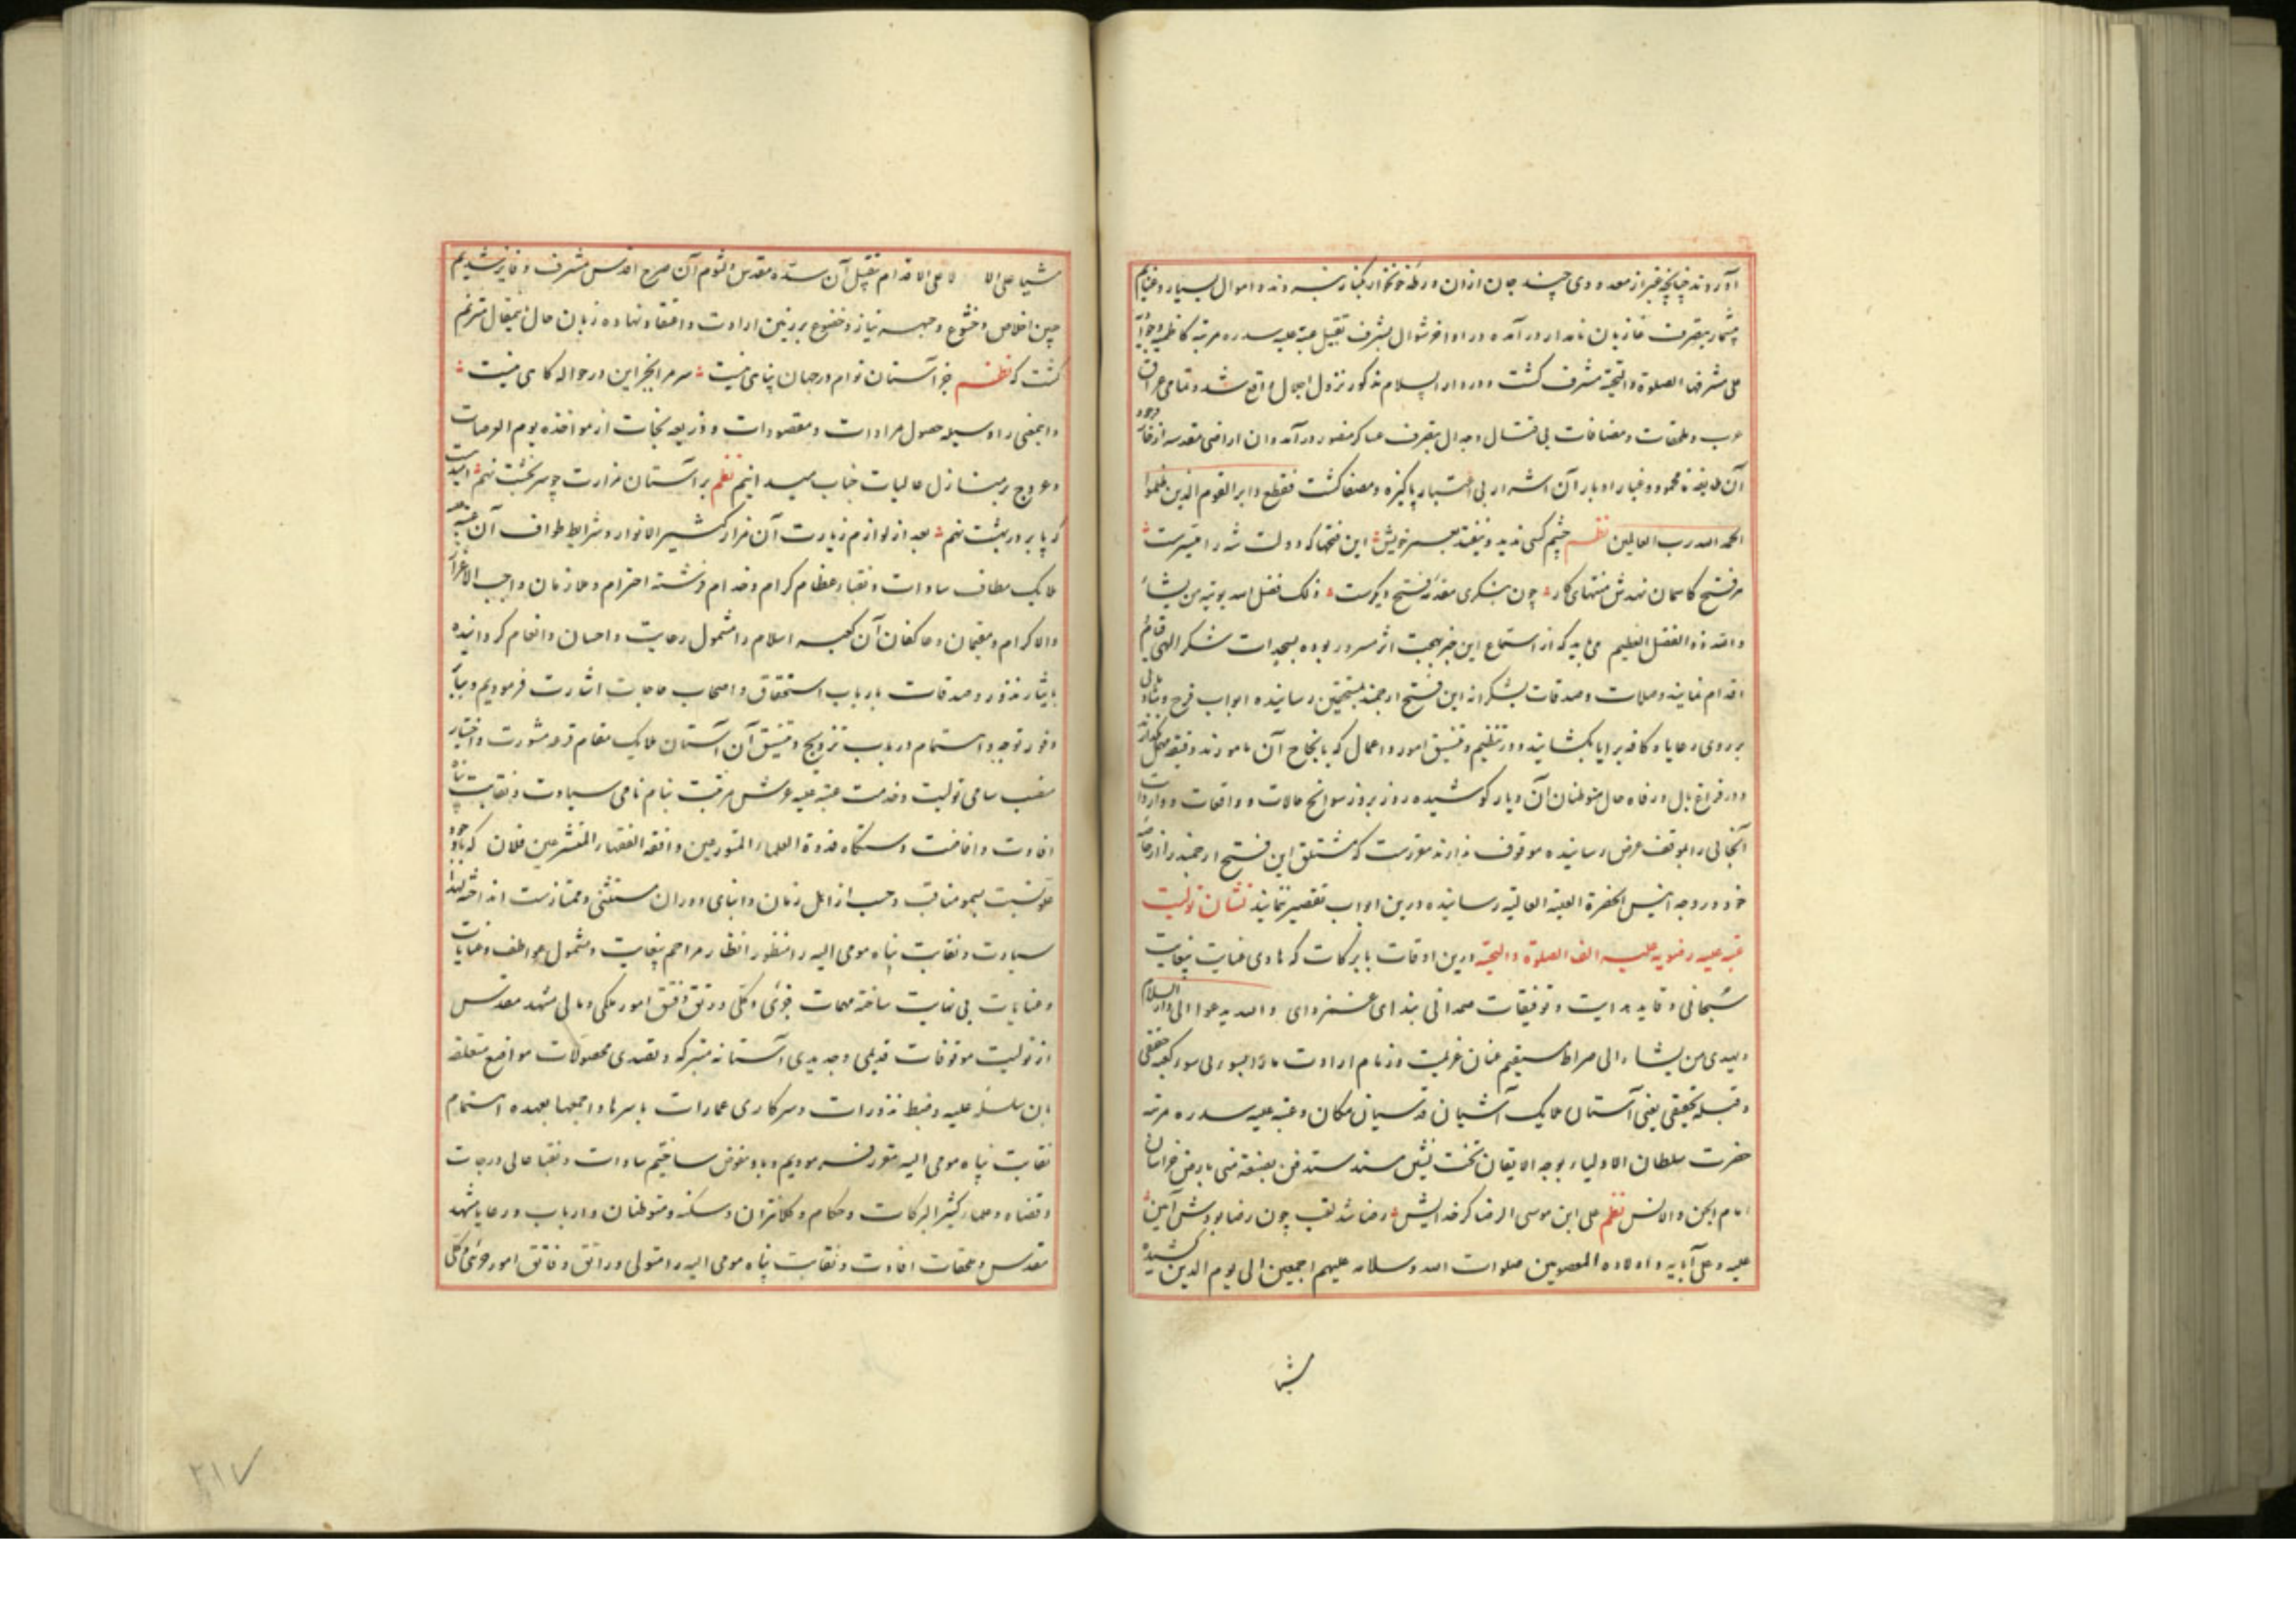 آوردند چنانچه غیر از معدودی چند جان ازان ورطه خونخوار بکنار نبردند و اموال بسیار و غنایم
بیشمار بتصرف غازیان نامدار درآمده در اواخر شوال بشرف تقبیل عتبه علیه سدره مرتبه کاظمیه و جوادیه
علی مشرفها الصلوة والتحیة مشرف گشت و در دار السلام مذکور نزول اجلال واقع شد و تمامی عراق
عرب و ملحقات و مضافات بی قتال و جدال بتصرف عساکر منصور درآمد و ان اراضی مقدسه از خار وجود
آن طایفه نامحمود و غبار ادبار آن اشرار بی اعتبار پاکیزه و مصفا گشت فقطع دابر القوم الذین ظلموا
الحمد لله رب العالمین نظم چشم کسی ندید و نبیند بعمر خویش این فتحها که دولت شه را میسرست
هر فتح کاسمان نهدش منتهای کار چون بنگری مقدمه فتح دیگرست ذلک فضل الله یوتیه من یشاء
والله ذو الفضل العظیم می باید که از استماع این خبر بهجت اثر مسرور بوده بسجدات شکر الهی قیام
اقدام نمایند و صلات و صدقات بشکرانه این فتح ارجمند بمستحقین رسانیده ابواب فرح و شادمانی
بر روی رعایا و کافه برایا بگشایند و در تنظیم و تنسیق امور و اعمال که بانجاح آن مامورند دقیقه مهمل نگذارند
و در فراغ بال و رفاه حال متوطنان آن دیار کوشیده روز بروز سوانح حالات و واقعات و واردات
آنجائی را بموقف عرض رسانیده موقوف ندارند مقررست که مشتلق این فتح ارجمند را از خاصه
خود در وجه انیس الحضرة العلیة العالیه رسانیده درین ابواب تقصیر ننمایند نشان تولیت
عتبه علیه رضویه علیه الف الصلوة والتحیة درین اوقات بابرکات که هادی عنایت بیغایت
سبحانی و قاید هدایت و توفیقات صمدانی بندای والله یدعوا الی دار السلام
و یهدی من یشاء الی صراط مستقیم عنان عزیمت و زمام ارادت ما را بسوی کعبه حقیقی
و قبله تحقیقی یعنی آستان ملایک آشیان قدسیان مکان و عتبه علیه سدره مرتبه
حضرت سلطان الاولیاء بوجه الایقان تخت نشین مسند ستدفن بضعة منی بارض خراسان
امام الجن والانس نظم علی ابن موسی الرضا کز خدایش رضا شد لقب چون رضا بودش آئین
علیه و علی آبایه و اولاده المعصومین صلوات الله و سلامه علیهم اجمعین الی یوم الدین کشیده
مشیا
مشیا علی الا لا علی الاقدام بتقبیل آن سده مقدس و لثوم آن ضریح اقدس مشرف و فایز شدیم
جبین اخلاص و خشوع و جبهه نیاز و خضوع بر زمین ارادت و اعتقاد نهاده زبان حال بمقال مترنم
گشت که نظم جز آستان توام در جهان پناهی نیست سر مرا بجز این در حواله گاهی نیست
و این معنی را وسیله حصول مرادات و مقصودات و ذریعه نجات از مواخذه یوم العرصات
و عروج بر منازل عالیات جناب میدانیم نظم بر آستان مزارت چو سر بخشت نهم امیدست
که پا بر در بهشت نهم بعد از لوازم زیارت آن مزار کثیر الانوار و شرایط طواف آن عتبه
ملایک مطاف سادات و نقباء عظام کرام و خدام فرشته احترام و ملازمان واجب الاعزاز
والاکرام و مقیمان و عاکفان آن کعبه اسلام را مشمول رعایت و احسان و انعام گردانیده
بایثار نذور و صدقات بارباب استحقاق و اصحاب حاجات اشارت فرمودیم و بنابر
وفور توجه و اهتمام در باب ترویج و تنسیق آن آستان ملایک مقام قرعه مشورت و اختیار
منصب سامی تولیت و خدمت عتبه علیه عرش مرتبت بنام نامی سیادت و نقابت پناه
افادت و افاضت دستگاه قدوة العلماء المتورعین و افقه الفقهاء المتشرعین فلان که باوجود
علو نسبت بسمو مناقب و حسب از اهل زمان و ابنای دوران مستثنی و ممتازست انداخته لهذا
سیادت و نقابت پناه مومی الیه را منظور انظار مراحم بیغایت و مشمول عواطف و عنایات
و عنایات بی نهایت ساخته مهمات جزئی و کلی و رتق و فتق امور ملکی و مالی مشهد مقدس
از تولیت موقوفات قدیمی و جدیدی آستانه متبرکه و تصدی محصولات مواضع متعلقه
بان سلسله علیه و ضبط نذورات و سرکاری عمارات باسرها و اجمعها بعهده اهتمام
نقابت پناه مومی الیه مقرر فرمودیم و بدو مفوض ساختیم سادات و نقباء عالی درجات
و قضاه و علماء کثیر البرکات و حکام و کلانتران و سکنه و متوطنان و ارباب و رعایا مشهد
مقدس و ملحقات افادت و نقابت پناه مومی الیه را متولی و راتق و فاتق امور جزئی و کلی
۲۱۷